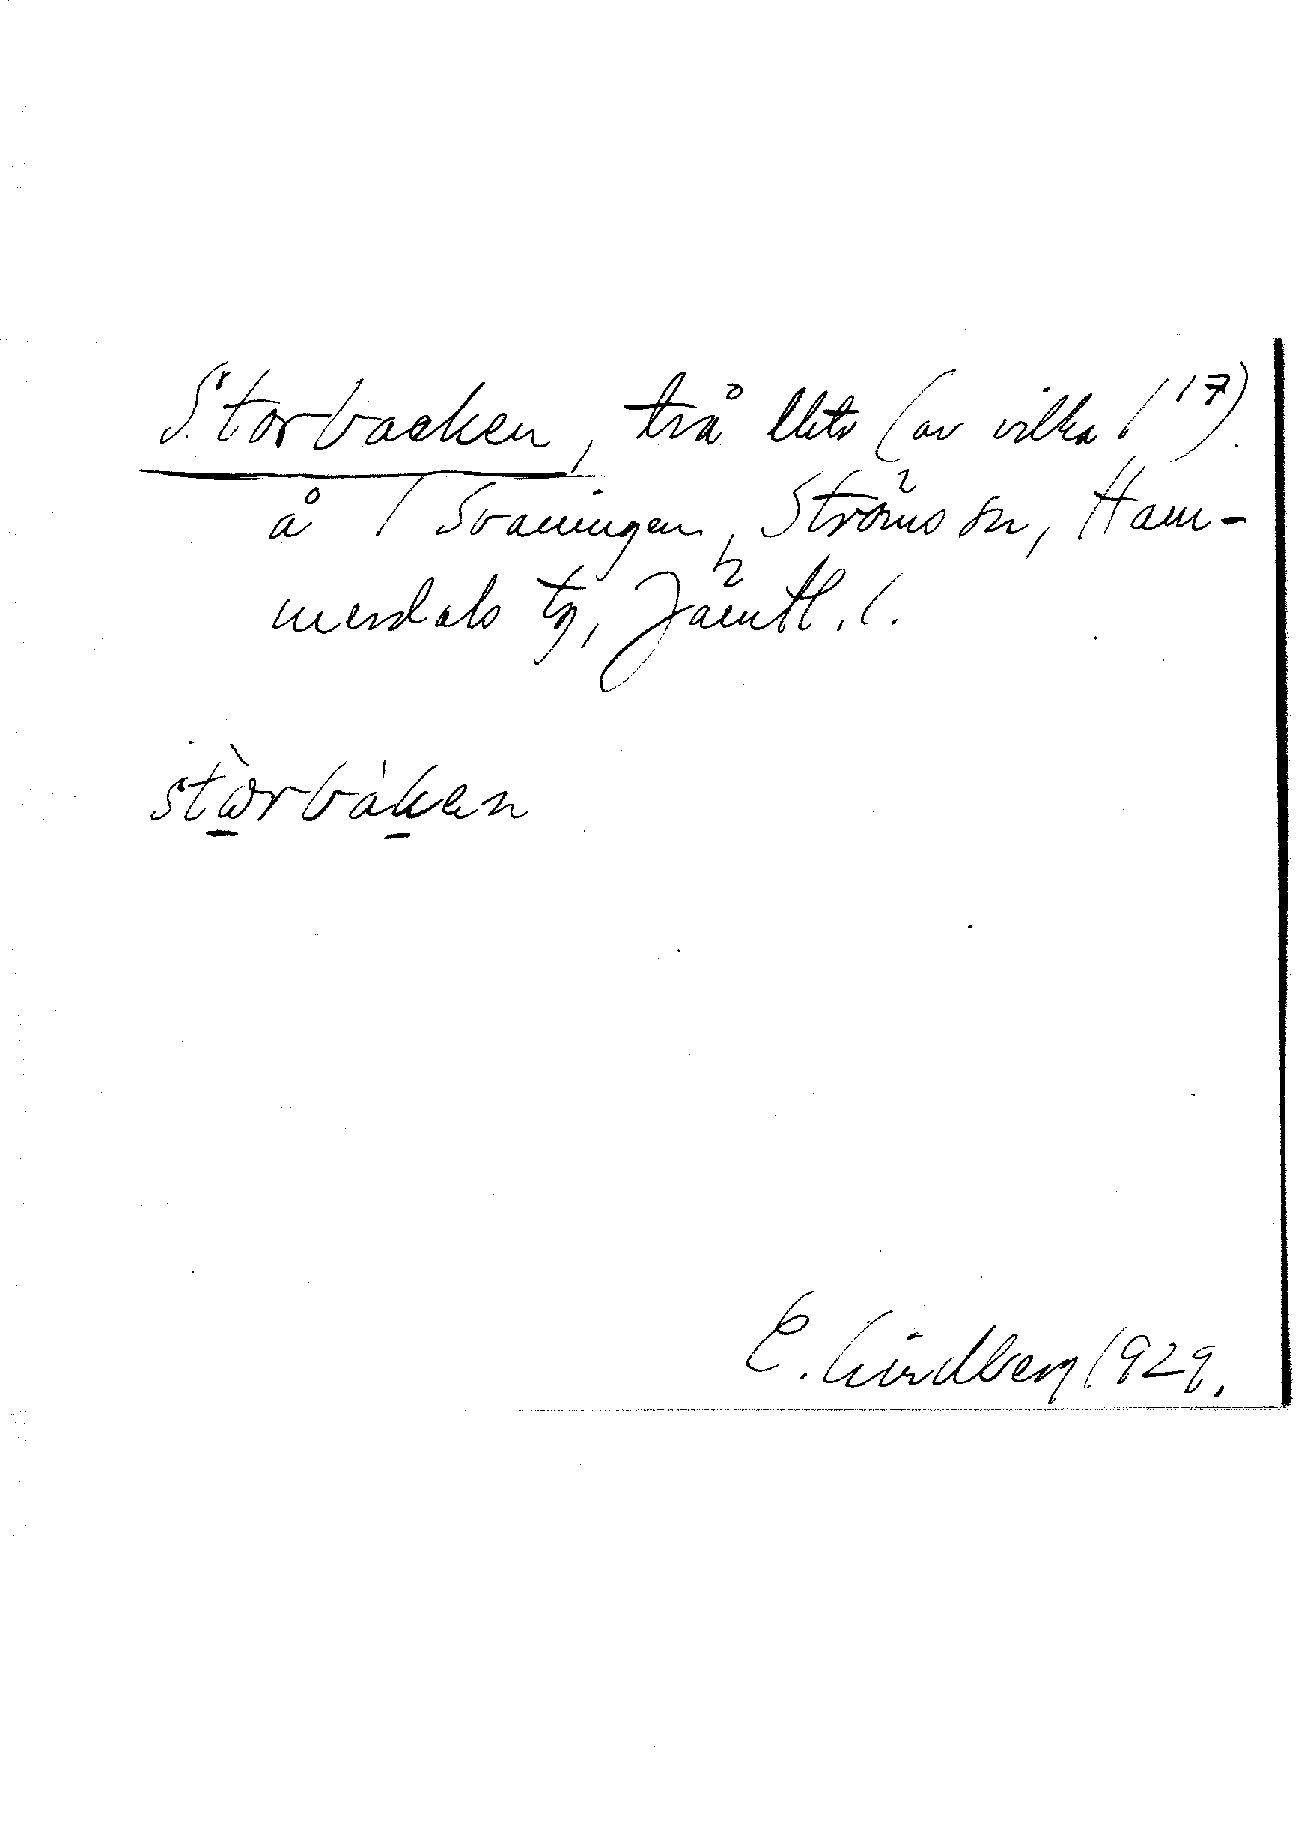 Storbacken, två lht (av vilka 1 17)
å 1 Svaningen, Ströms sn, Ham-
merdals tg, Jämtl. l.
stòrbáken
E. Lindberg 1929.